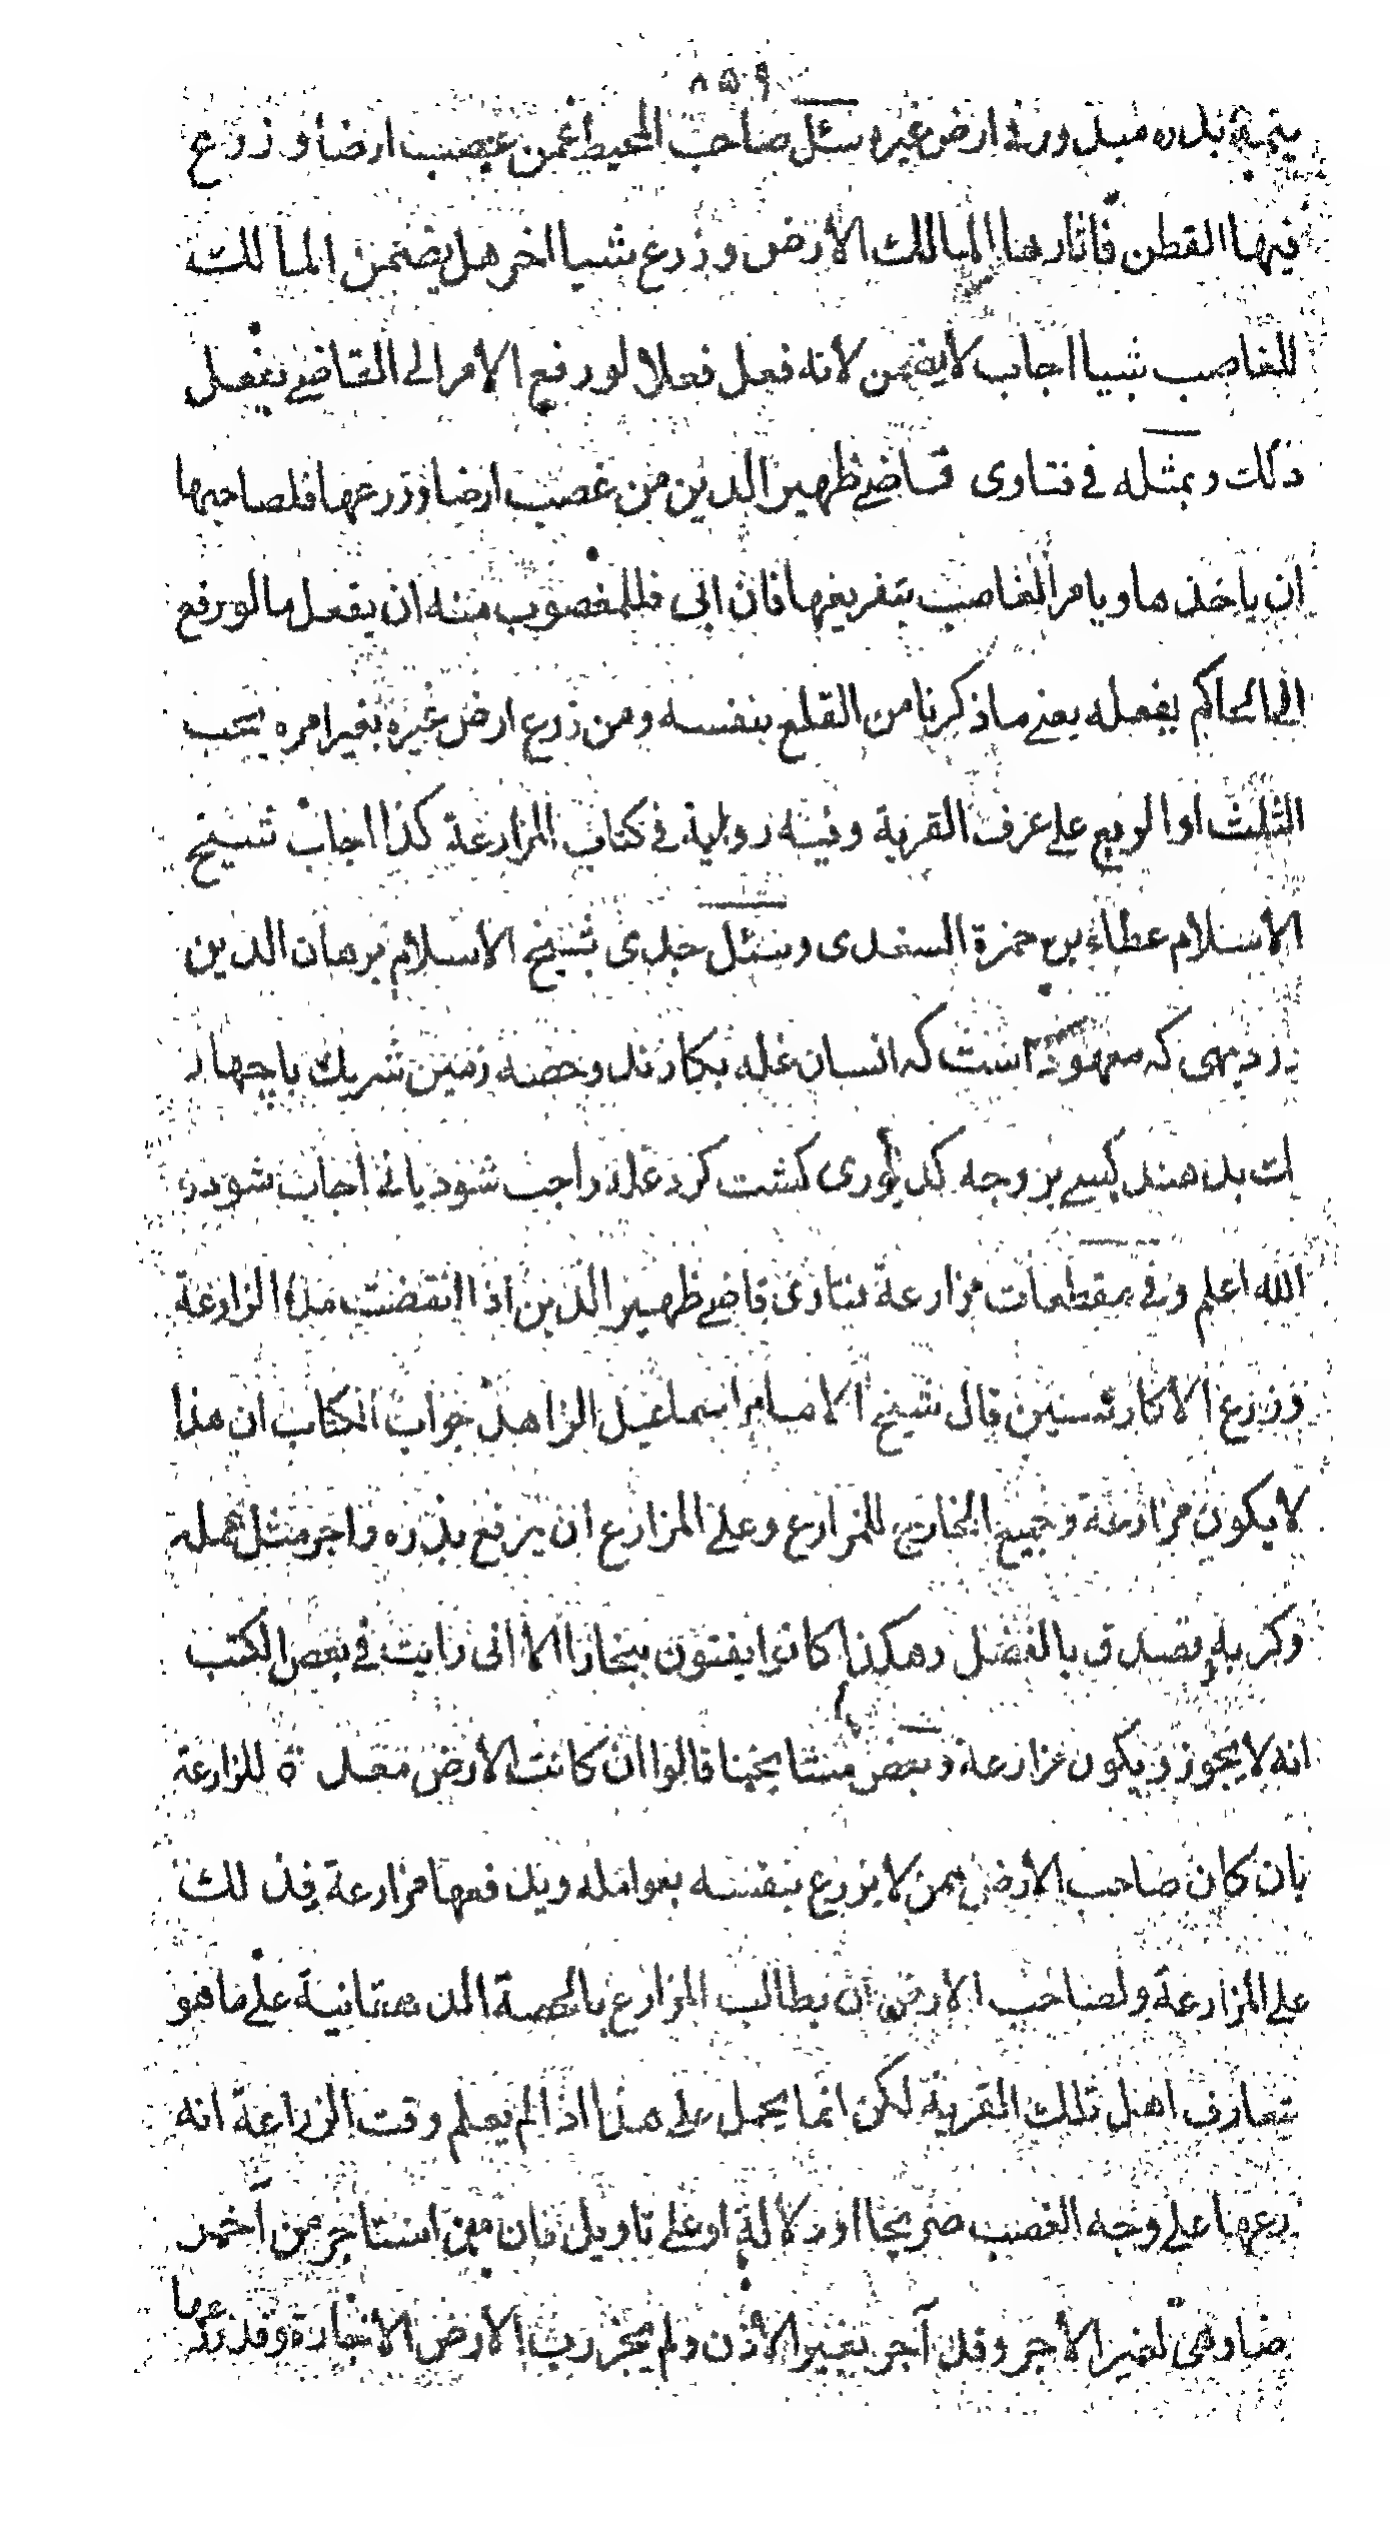 ٨٥٩
قيمة بذره مبذورا في ارض غيره سئل صاحب المحيط عمن غصب ارضا و زرع
فيها القطن فاثارها المالك الارض وزرع شيا اخر هل يضمن المالك
للغاصب شيا اجاب لا يضمن لانه فعل فعلا لو رفع الامر الى القاضي يفعل
ذلك وبمثله في فتاوى قاضي ظهير الدين من غصب ارضا وزرعها فلصاحبها
ان ياخذها ويامر الغاصب بتفريغها فان ابى فللمغصوب منه ان يفعل ما لو رفع
الى الحاكم يفعله يعني ما ذكرنا من القلع بنفسه ومن زرع ارض غيره بغير امره يجب
الثلث او الربع على عرف القرية وفيه رواية في كتاب المزارعة كذا اجاب شيخ
الاسلام عطاء بن حمزة السغدى وسئل جدى شيخ الاسلام برهان الدين
در ديهى كه معهود است كه انسان غله بكارند وحصه زمين شريك يا چهار
يك بدهند كسے بر وجه كديورى كشت كرد غله واجب شود يا نے اجاب شود و
الله اعلم وفي مقطعات مزارعة فتاوى قاضي ظهير الدين اذا انقضت مدة المزارعة
وزرع الاكار سنين قال شيخ الامام اسماعيل الزاهد جواب الكتاب ان هذا
لا يكون مزارعة وجميع الخارج للمزارع وعلى المزارع ان يرفع بذره واجر مثل عمله
وكربه وتصدق بالفضل وهكذا كانوا يفتون ببخارا الا انى رايت في بعض الكتب
انه لا يجوز ويكون مزارعة وبعض مشايخنا قالوا ان كانت الارض معدة للزارعة
بان كان صاحب الارض ممن لا يزرع بنفسه بعوامله ويدفعها مزارعة فذلك
على المزارعة ولصاحب الارض ان يطالب المزارع بالحصة الدهقانية على ما هو
تعارف اهل تلك القرية لكن انما يحمل على هذا اذا لم يعلم وقت الزراعة انه
زرعها على وجه الغصب صريحا او دلالة او على تاويل فان من استاجر من آخر
ضا وهى لغير الاجر وقد آجر بغير الاذن ولم يجز رب الارض الاجارة وقد زرعها